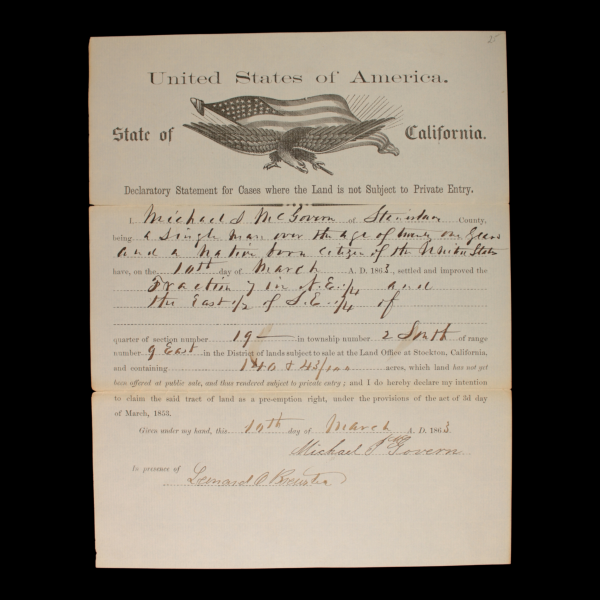 25
United States of America.
State of California.
Declaratory Statement for Cases where the Land is not Subject to Private Entry.
I, Michael S McGovern of Stanislaus County,
being a Single man over the age of twenty one years
and a Native born citizen of the United States
have, on the 10th day of March A. D. 1863, settled and improved the
Fraction in N.E. 1/4 and
the East 1/2 of S.E. 1/4 of
quarter of section number 19 in township number 2 South of range
number 9 East in the District of lands subject to sale at the Land Office at Stockton, California,
and containing 140 & 43/100 acres, which land has not yet
been offered at public sale, and thus rendered subject to private entry; and I do hereby declare my intention
to claim the said tract of land as a pre-emption right, under the provisions of the act of 3d day
of March, 1853.
Given under my hand, this 10th day of March A. D. 1863
Michael S McGovern
In presence of
Leonard